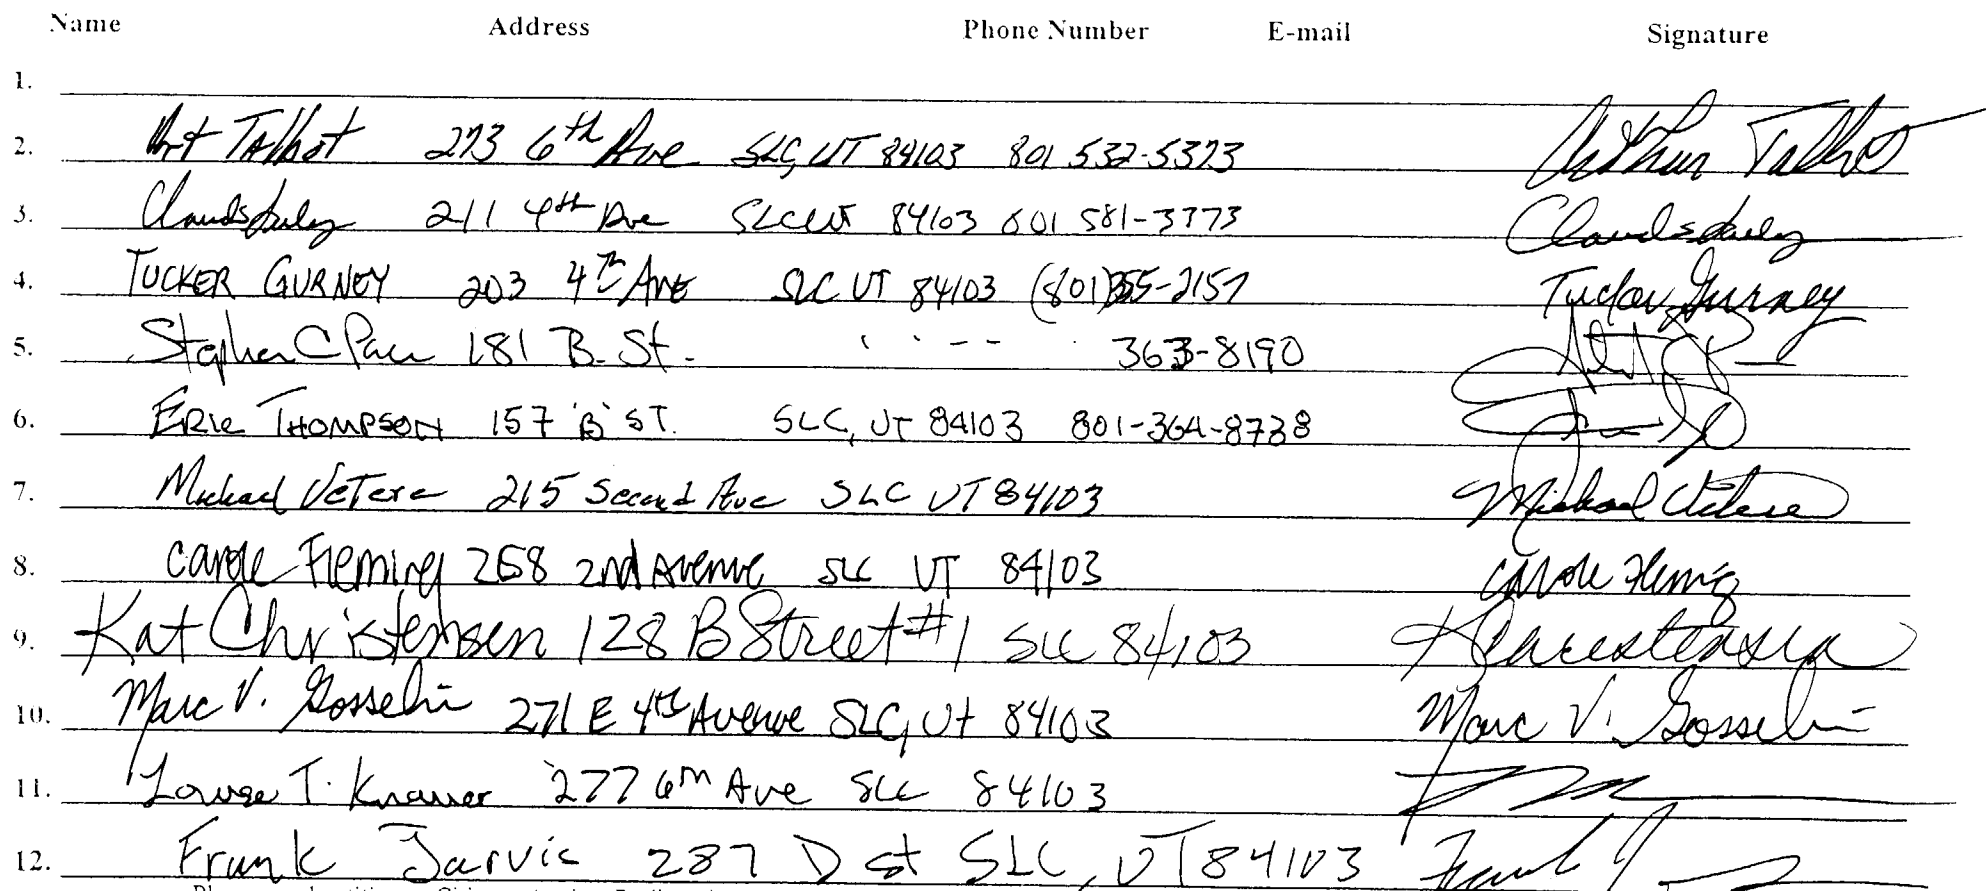 Name Address Phone Number E-mail Signature
1.
2. Art Talbot 273 6th Ave SLC, UT 84103 801 532-5373 Arthur Talbot
3. 211 4th Ave SLC UT 84103 801 581-3773
4. TUCKER GURNEY 203 4TH AVE SLC UT 84103 (801)355-2157 Tucker Gurney
5. Stephen C 181 B. St. 363-8190
6. ERIC THOMPSON 157 'B' ST. SLC, UT 84103 801-364-8738
7. Michael Vetere 215 Second Ave SLC UT 84103 Michael Vetere
8. Carole Fleming 258 2nd Avenue SLC UT 84103 Carole Fleming
9. Kat Christensen 128 B Street #1 SLC 84103 K Christensen
10. Marc V. Gosselin 271 E 4th Avenue SLC, Ut 84103 Marc V. Gosselin
11. Louise T. Knauer 277 6th Ave SLC 84103
12. Frank Jarvis 287 D St SLC, UT 84103 Frank J